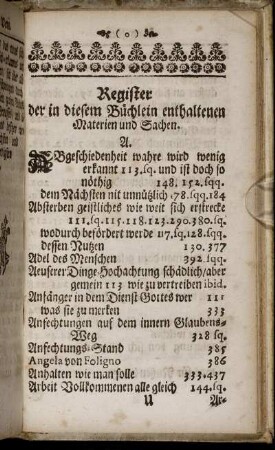 ( o )
Register
der in diesem Büchlein enthaltenen
Materien und Sachen.
A.
ABgeschiedenheit wahre wird wenig
erkannt 113. sq. und ist doch so
nöthig 148. 152. sqq.
dem Nächsten nit unnützlich 178. sqq. 184
Absterben geistliches wie weit sich erstrecke
111. sq. 115. 118. 123. 290. 380. sq.
wodurch befördert werde 117. sq. 128. sqq.
dessen Nutzen 130. 377
Adel des Menschen 392. sqq.
Aeuserer Dinge Hochachtung schädlich/aber
gemein 113 wie zu vertreiben ibid.
Anfänger in dem Dienst Gottes wer 111
was sie zu mercken 333
Anfechtungen auf dem innern Glaubens-
Weg 328 sq.
Anfechtungs-Stand 385
Angela von Foligno 386
Anhalten wie man solle 333. 437
Arbeit Vollkommenen alle gleich 144. sq.
U Ar-